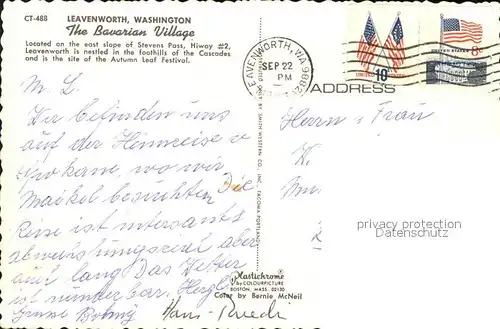 CT-488
LEAVENWORTH, WASHINGTON
The Bavarian Village
Located on the east slope of Stevens Pass, Hiway #2,
Leavenworth is nestled in the foothills of the Cascades
and is the site of the Autumn Leaf Festival.
LEAVENWORTH, WA
SEP 22
PM
10¢
UNITED STATES
8c
ADDRESS
M. L.
Wir befinden uns
auf der Heimreise v
Spokane, wo wir
Maikel besuchten. Die
Reise ist interessants
abwechslungsreich aber
auch lang. Das Wetter
ist wunderbar. Herzl.
Grüsse
Hans-Ruedi
Herrn u Frau
K.
BY SMITH WESTERN CO., INC. TACOMA PORTLAND
Plastichrome
by COLOURPICTURE
BOSTON, MASS. 02130
Color by Bernie McNeil
privacy protection
Datenschutz